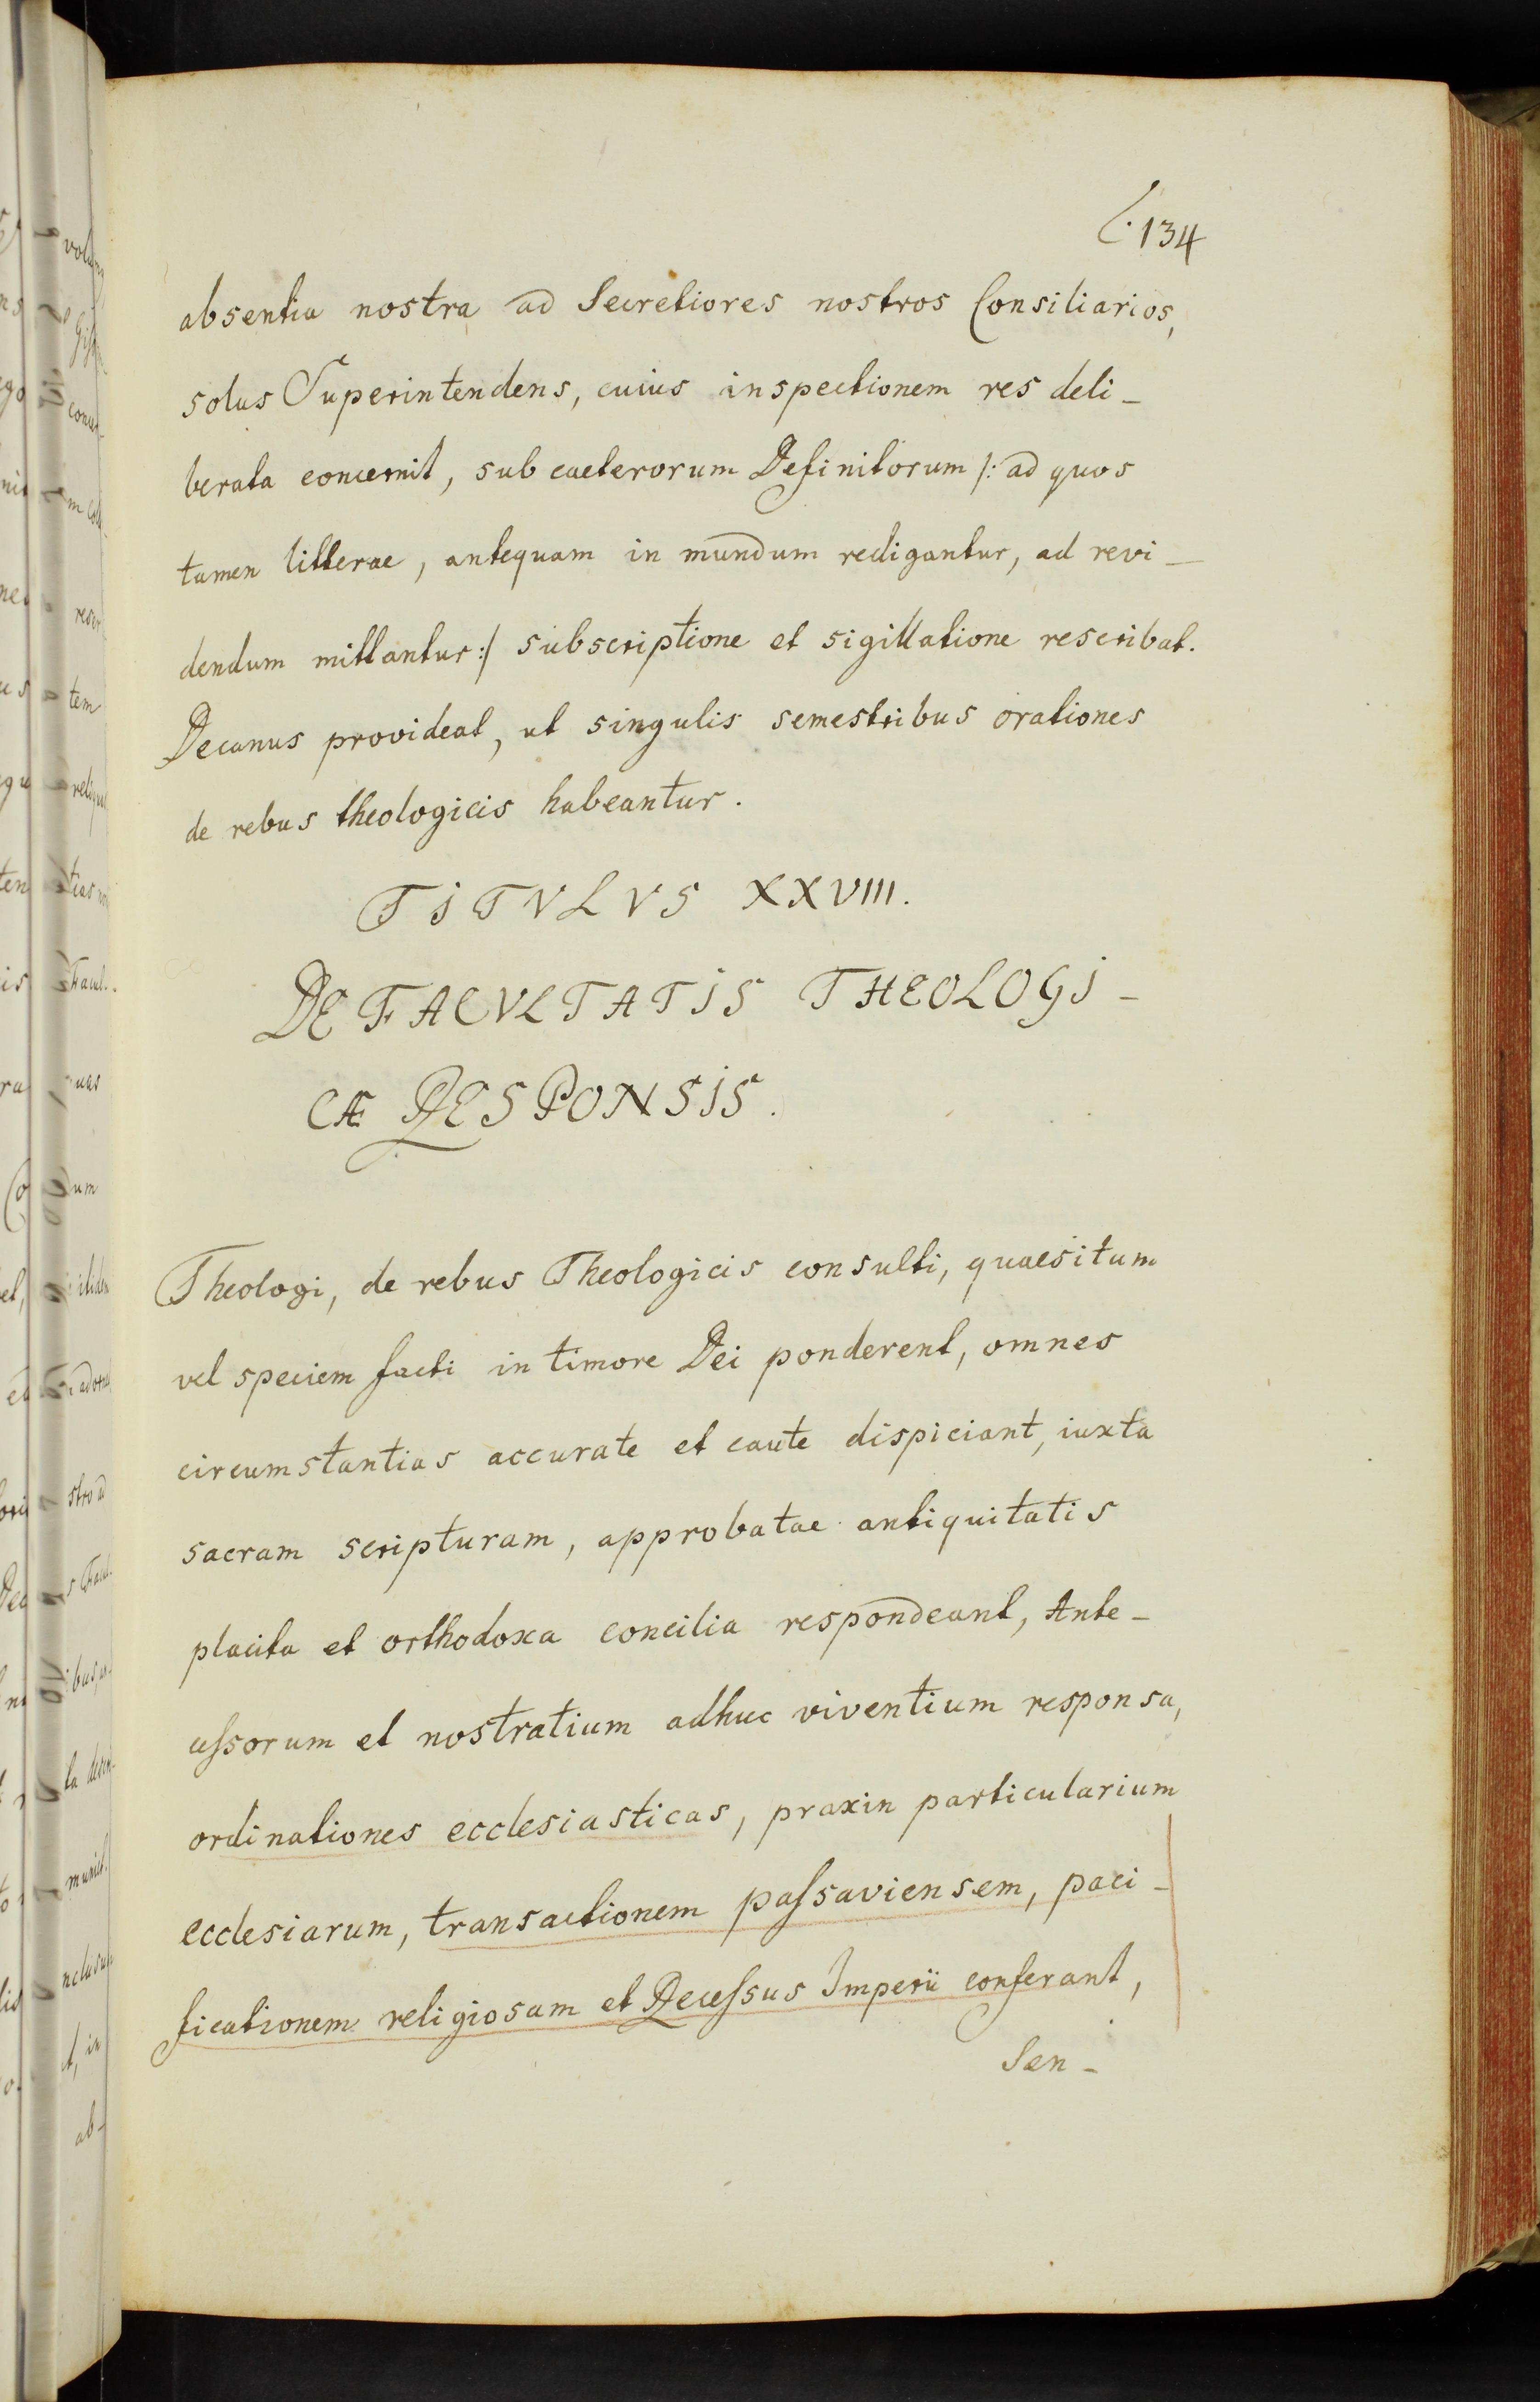 C. 134
absentia nostra ad Secretiores nostros Consiliarios,
solus Superintendens, cuius inspectionem res deli-
berata concernit, sub caeterorum Definitorum /: ad quos
tamen litterae, antequam in mundum redigantur, ad revi-
dendum mittantur :/ subscriptione et sigillatione rescribat.
Decanus provideat, ut singulis semestribus orationes
de rebus theologicis habeantur.
TITVLVS XXVIII.
DE FACVLTATIS THEOLOGI-
CÆ RESPONSIS.
Theologi, de rebus Theologicis consulti, quaesitum
vel speciem facti in timore Dei ponderent, omnes
circumstantias accurate et caute dispiciant, iuxta
sacram scripturam, approbatae antiquitatis
placita et orthodoxa concilia respondeant, Ante-
ceſsorum et nostratium adhuc viventium responsa,
ordinationes ecclesiasticas, praxin particularium
ecclesiarum, transactionem paſsaviensem, paci-
ficationem religiosam et Receſsus Imperii conferant,
Sen-